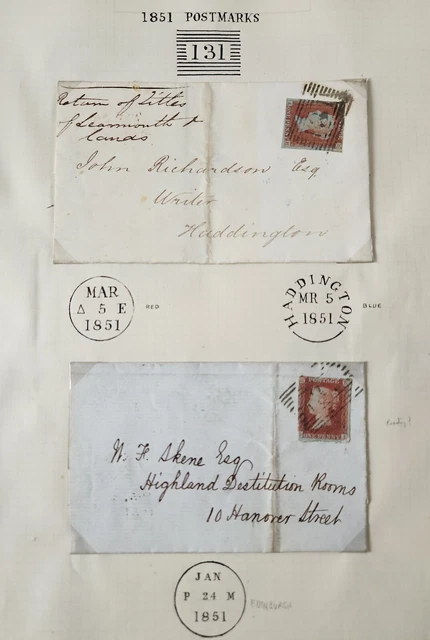 1851 POSTMARKS
131
Return of Titles
of Learmouth &
lands
John Richardson Esq
Writer
Haddington
MAR
Δ 5 E
1851
RED
HADDINGTON
MR 5
1851
BLUE
POSTAGE
ONE PENNY
W. F. Skene Esq
Highland Destitution Rooms
10 Hanover Street
JAN
P 24 M
1851